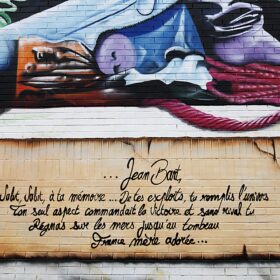 ... Jean Bart,
Salut, Salut, à ta mémoire ... De tes exploits, tu remplis l'univers
Ton seul aspect commandait la victoire et sans rival tu
Régnas sur les mers jusqu'au tombeau
France mère adorée ...